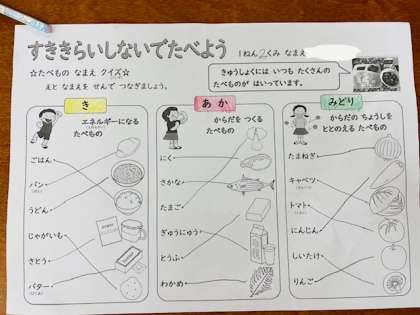 すききらいしないでたべよう
1ねん 2くみ なまえ
☆たべもの なまえ クイズ☆
えと なまえを せんで つなぎましょう。
きゅうしょくには いつも たくさんの
たべものが はいっています。
き
エネルギーになる
たべもの
ごはん
パン
うどん
じゃがいも
さとう
バター
あか
からだを つくる
たべもの
にく
さかな
たまご
ぎゅうにゅう
とうふ
わかめ
みどり
からだの ちょうしを
ととのえる たべもの
たまねぎ
キャベツ
トマト
にんじん
しいたけ
りんご